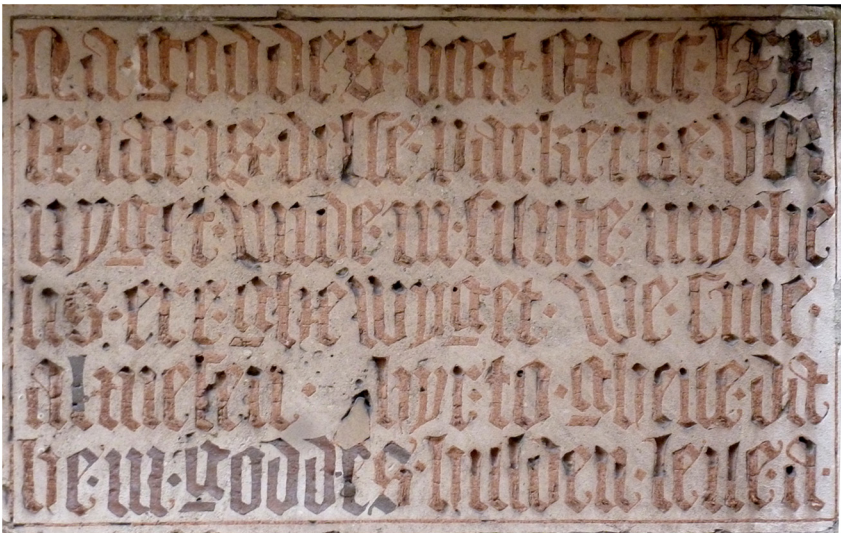 Na · goddes · bort · M · ccc · lxx
ix · iar · is · desse · parkerke · vor
nyget · vnde · in · sunte · myche
lis · ere · ghewyget · We · sine ·
almesen · hyr · to · gheue · dat
he · in · goddes · hulden · leue · a ·